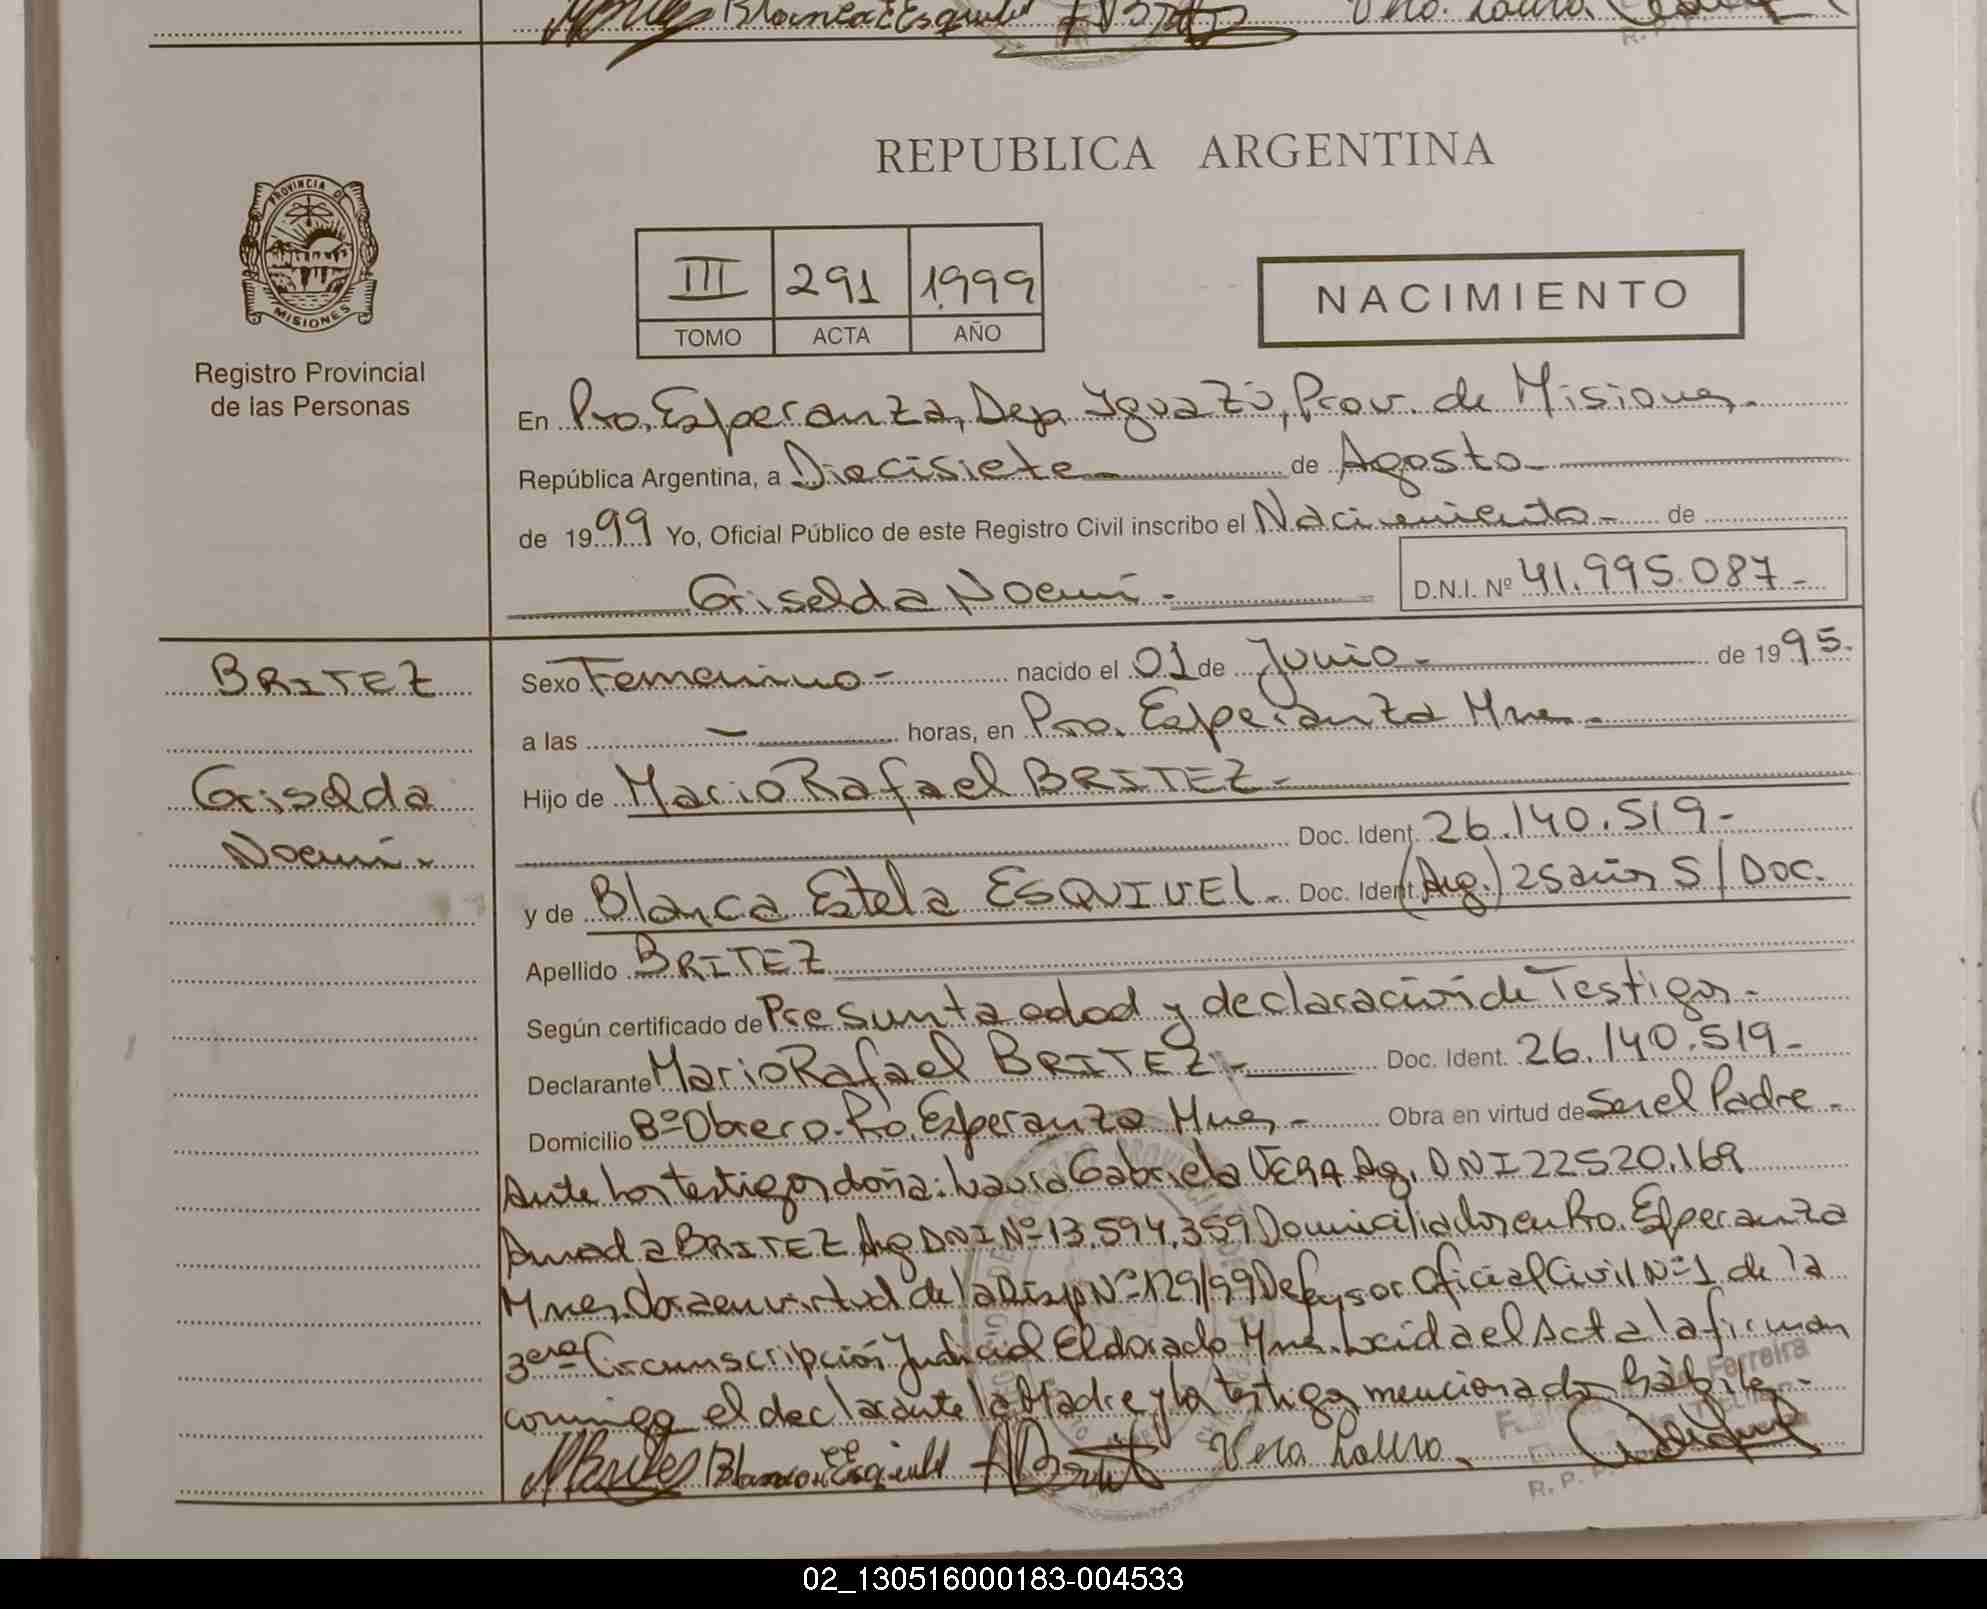 Blanca E Esquivel Vera. Laura
REPUBLICA ARGENTINA
PROVINCIA DE
MISIONES
Registro Provincial
de las Personas
III 291 1999
TOMO ACTA AÑO
NACIMIENTO
En Pto. Esperanza, Dep. Iguazú, Prov. de Misiones.
República Argentina, a Diecisiete de Agosto
de 1999 Yo, Oficial Público de este Registro Civil inscribo el Nacimiento de
Griselda Noemi. D.N.I. Nº 41.995.087
BRITEZ
Griselda
Noemi.
Sexo Femenino nacido el 01 de Junio de 1995.
a las - horas, en Pto. Esperanza Mnes.
Hijo de Mario Rafael BRITEZ
Doc. Ident. 26.140.519
y de Blanca Estela ESQUIVEL. Doc. Ident. (Arg.) 25 años S/Doc.
Apellido BRITEZ
Según certificado de Presunta edad y declaración de Testigos
Declarante Mario Rafael BRITEZ Doc. Ident. 26.140.519
Domicilio Bº Obrero. Pto. Esperanza Mnes. Obra en virtud de Ser el Padre
Ante los testigos doña: Laura Gabriela VERA Arg. DNI 22520.169
Amada BRITEZ Arg DNI Nº 13.594.359 Domiciliados en Pto. Esperanza
Mnes. Obra en virtud de la Disp Nº 129/99 Defensor Oficial Civil Nº 1 de la
3era Circunscripción Judicial Eldorado Mnes. Leida el Acta la firman
conmigo el declarante la Madre y los testigos mencionados hábiles
Blanca E Esquivel ABritez Vera Laura.
Ferreira
R. P. P.
02_130516000183-004533